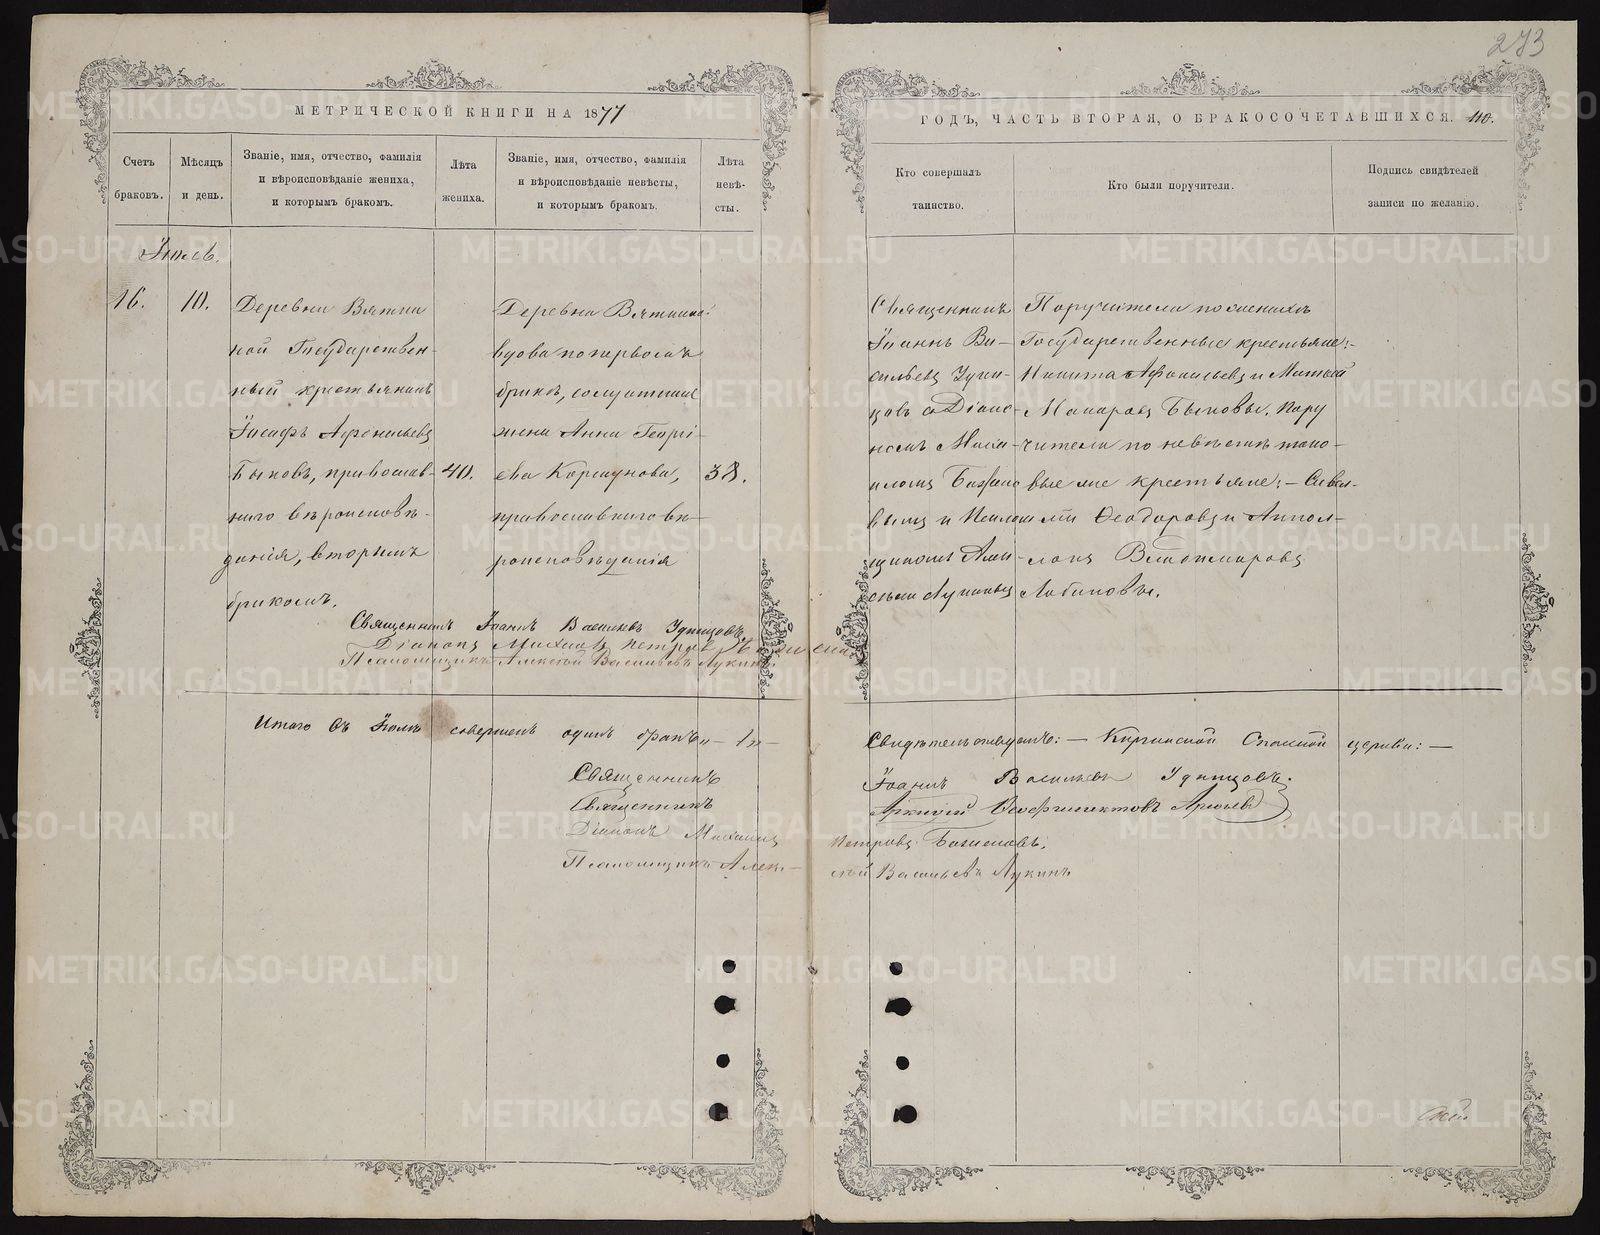 273
МЕТРИЧЕСКОЙ КНИГИ НА 1877
ГОДЪ, ЧАСТЬ ВТОРАЯ, О БРАКОСОЧЕТАВШИХСЯ. 110.
Счетъ браковъ.
Мѣсяцъ и день.
Званіе, имя, отчество, фамилія
и вѣроисповѣданіе жениха,
и которымъ бракомъ.
Лѣта жениха.
Званіе, имя, отчество, фамилія
и вѣроисповѣданіе невѣсты,
и которымъ бракомъ.
Лѣта невѣ-
сты.
Кто совершалъ
таинство.
Кто были поручители.
Подпись свидѣтелей
записи по желанію.
Іюль.
16.
10.
Деревни Вятки
ной Государствен-
ный крестьянинъ
Іасафъ Афонасьевъ
Быковъ, православ-
наго вѣроисповѣ-
данія, вторымъ
бракомъ.
40.
Деревни Вяткиной
вдова по первомъ
бракѣ, солдатская
жена Анна Георгі-
ева Коршунова,
православнаго вѣ-
роисповѣданія
38.
Священникъ
Іоаннъ Ва-
сильевъ Удин-
цовъ съ Діако-
номъ Миха-
иломъ Бажено-
вымъ и Псалом-
щикомъ Алек-
сѣемъ Лукинымъ
Поручители по женихѣ
Государственные крестьяне:-
Никита Афонасьевъ и Матвей
Макаровъ Быковы. Пору
чители по невѣстѣ тако-
вые же крестьяне:- Савел-
лій Ѳеодоровъ и Аппол-
лонъ Владимировъ
Лобановы.
Священникъ Іоаннъ Васильевъ Удинцовъ,
Діаконъ Михаилъ Петровъ Баженовъ
Псаломщикъ Алексѣй Васильевъ Лукинъ.
Итого въ Іюлѣ совершенъ одинъ бракъ „- 1„ -
Свидѣтельствуемъ: - Киргинской Спасской церкви: -
Священникъ Іоаннъ Васильевъ Удинцовъ.
Священникъ Аркадій Ѳеофилактовъ Арефьевъ
Діаконъ Михаилъ Петровъ Баженовъ.
Псаломщикъ Алек- сѣй Васильевъ Лукинъ
METRIKI.GASO-URAL.RU